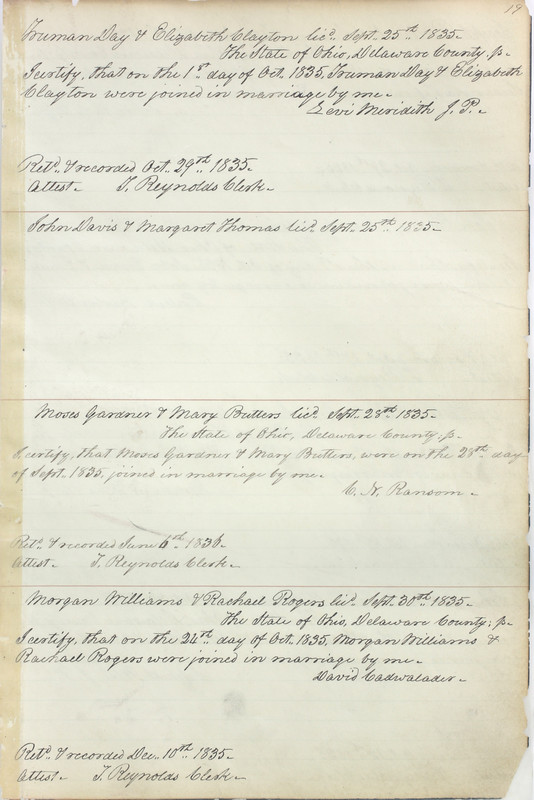 19
Truman Day & Elizabeth Clayton licd. Sept. 25th 1835.
The State of Ohio, Delaware County, ss.
I certify, that on the 1st day of Oct. 1835, Truman Day & Elizabeth
Clayton were joined in marriage by me.
Levi Meridith J. P.
Retd. & recorded Oct. 29th 1835.
Attest. T. Reynolds Clerk.
John Davis & Margaret Thomas licd. Sept. 25th 1835.
Moses Gardner & Mary Butters licd. Sept. 28th 1835.
The State of Ohio, Delaware County, ss.
I certify, that Moses Gardner & Mary Butters, were on the 28th day
of Sept. 1835, joined in marriage by me.
C. N. Ransom.
Retd. & recorded June 6th 1836.
Attest. T. Reynolds Clerk.
Morgan Williams & Rachael Rogers licd. Sept. 30th 1835.
The State of Ohio, Delaware County; ss.
I certify, that on the 24th day of Oct. 1835, Morgan Williams &
Rachael Rogers were joined in marriage by me.
David Cadwalader.
Retd. & recorded Dec. 10th 1835.
Attest. T. Reynolds Clerk.